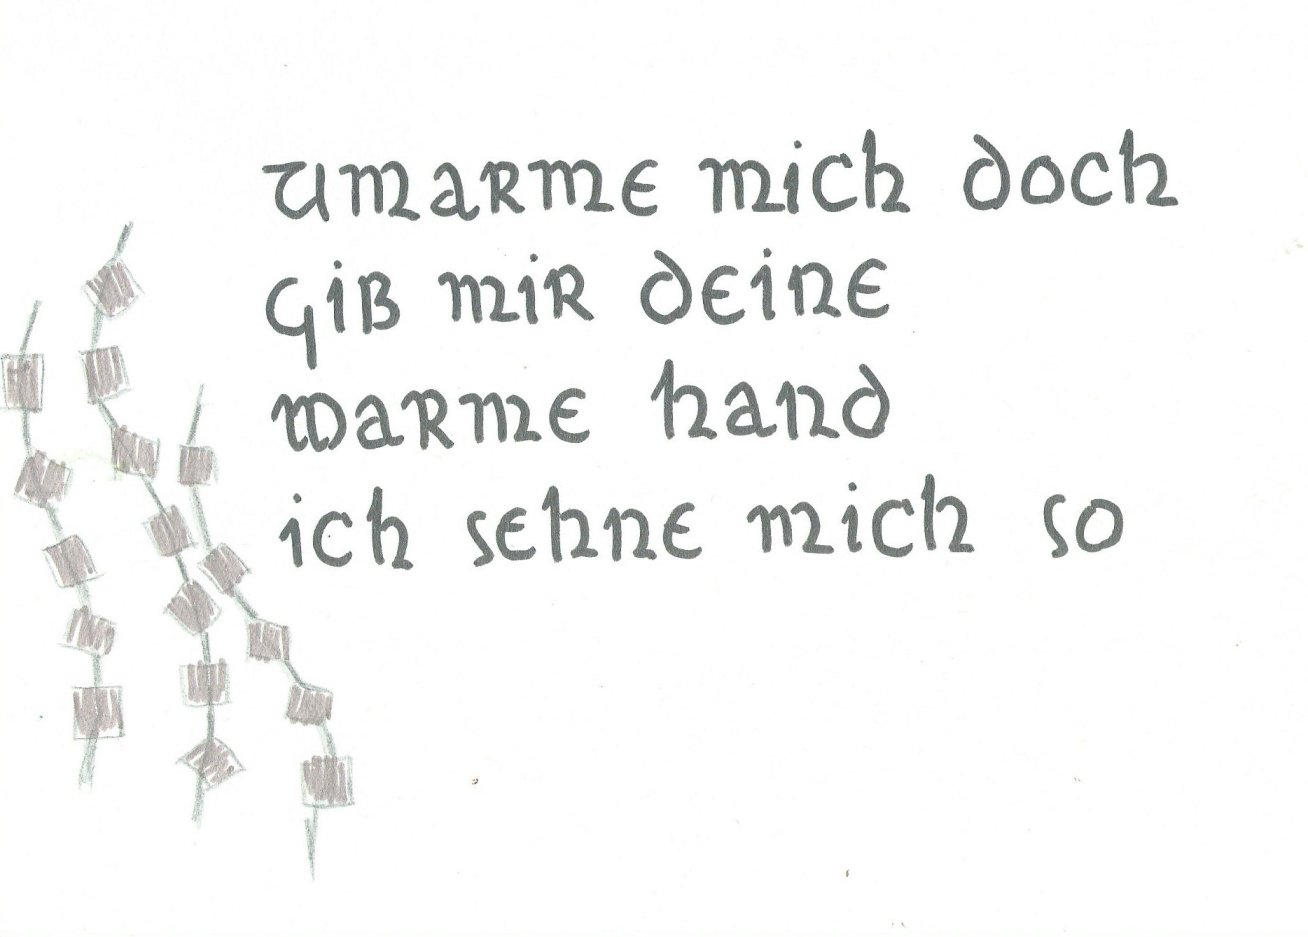 umarme mich doch
gib mir deine
warme hand
ich sehne mich so